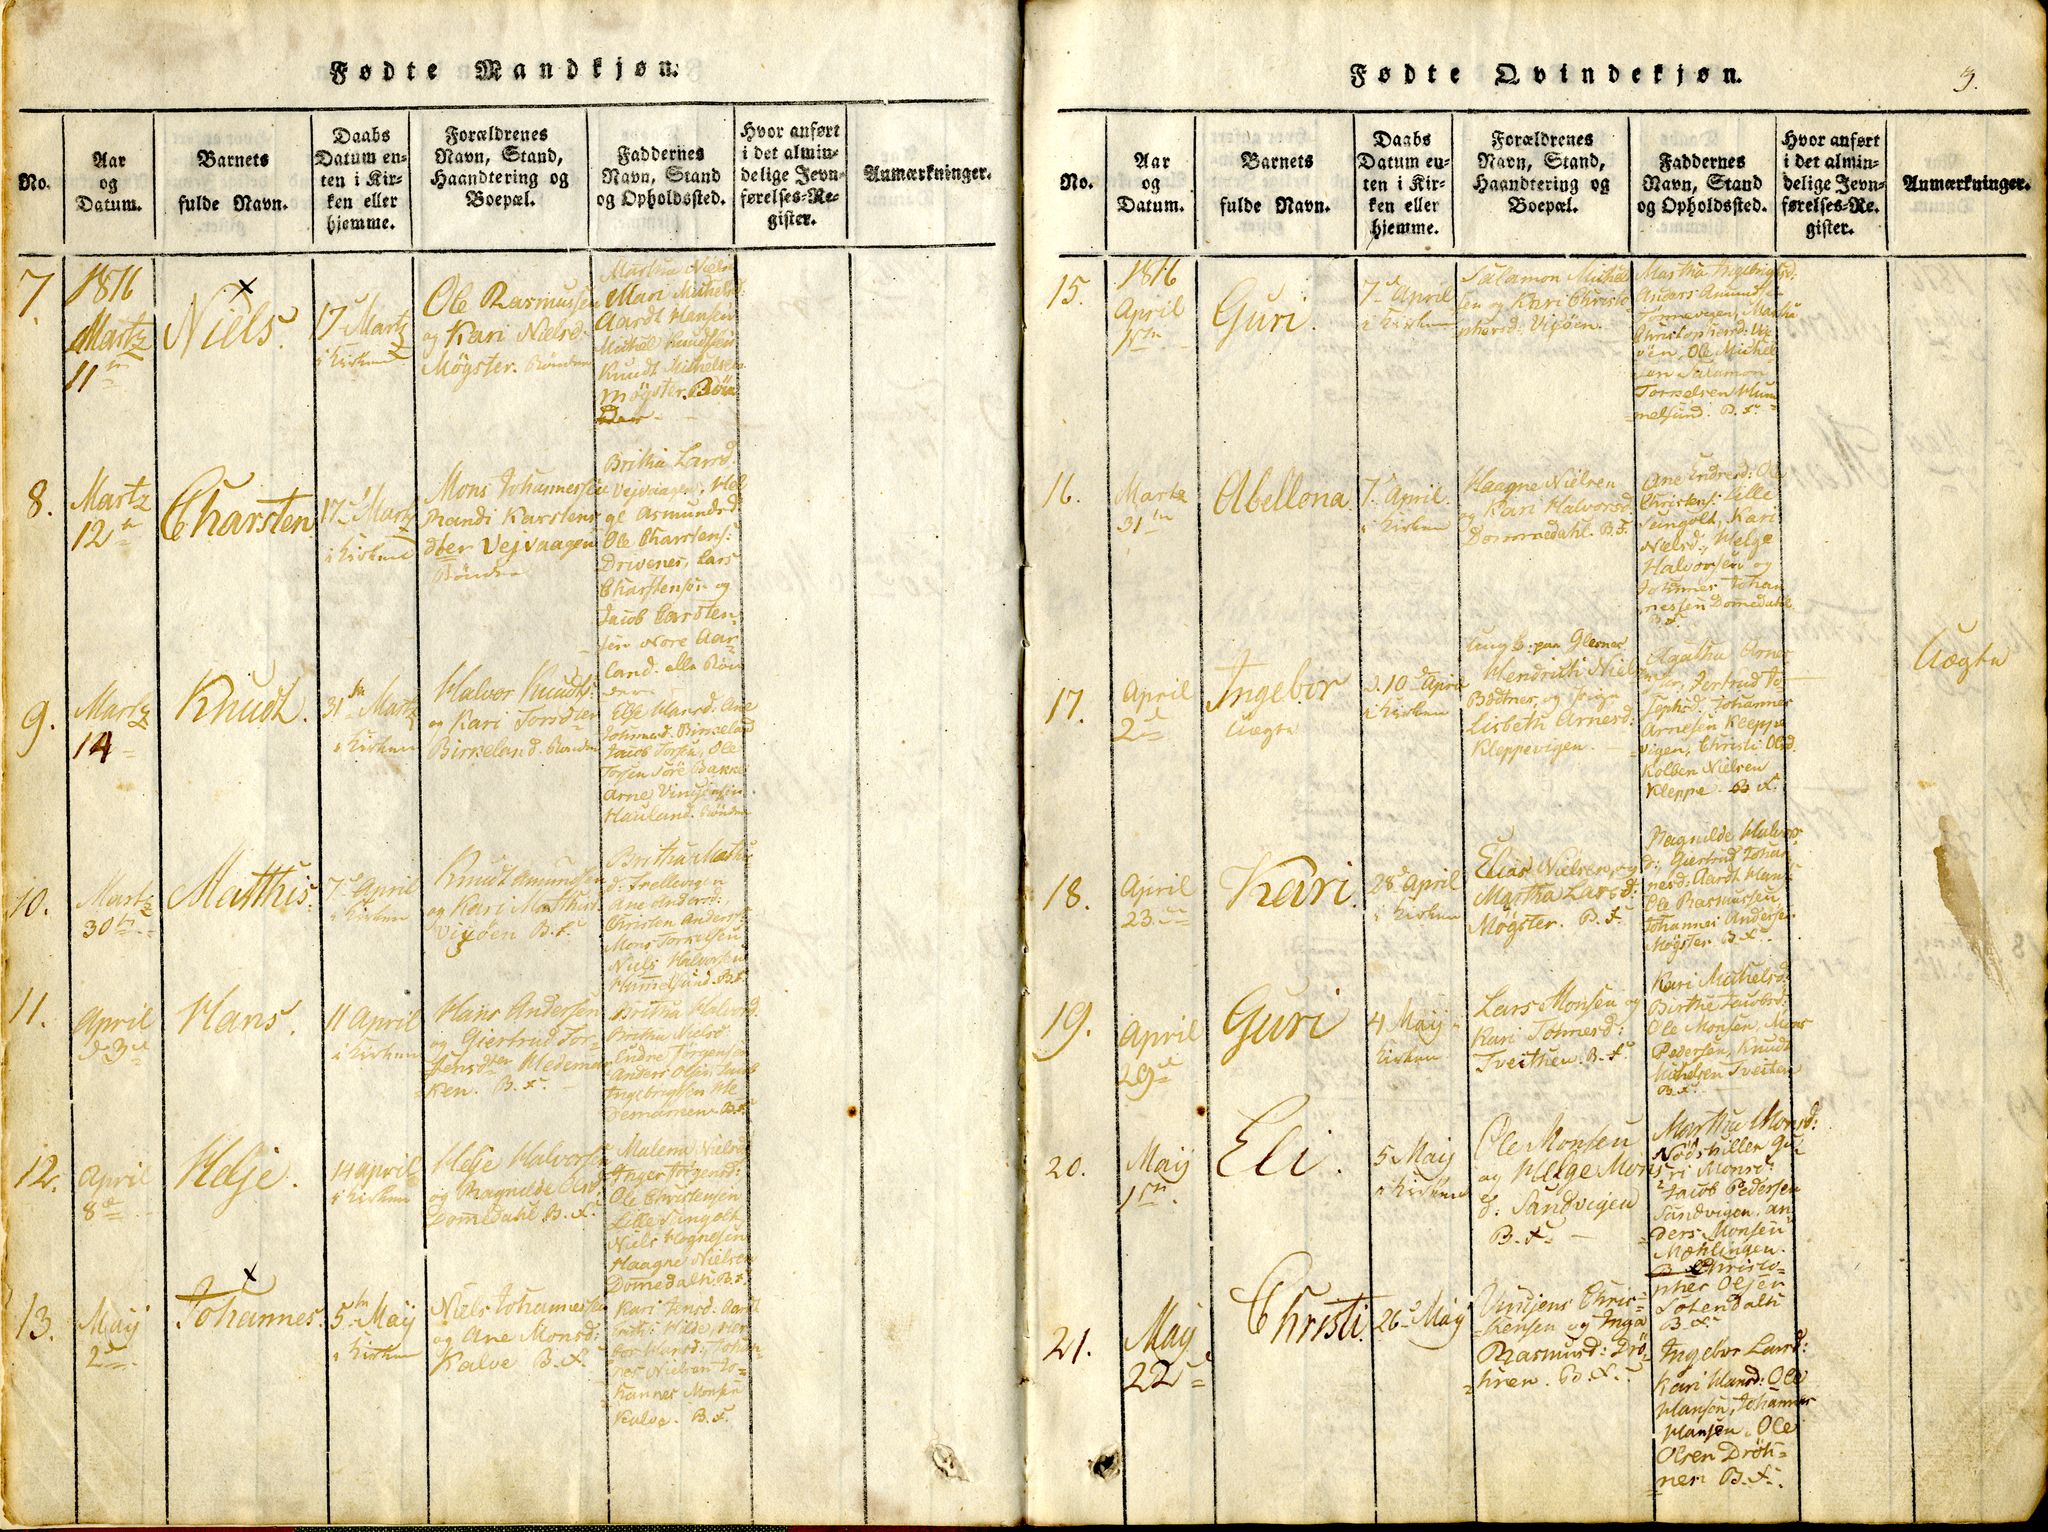 Fødte Mandkjøn.
No.
Aar
og
Datum.
Barnets
fulde Navn.
Daabs
Datum en-
ten i Kir-
ken eller
hjemme.
Forældrenes
Navn, Stand,
Haandtering og
Boepæl.
Faddernes
Navn, Stand
og Opholdssted.
Hvor anført
i det almin-
delige Jevn-
førelses-Re-
gister.
Anmærkninger.
7.
1816
Martz
11
Niels.
17 Martz
i Kirken
Ole Rasmussen
og Kari Nielsd.
Møgster. Bønder
Mari Michelsd:
Aardt Hansen
Michel Knudsen
Knudt Michelsen
Møgster. Bøn
der
8.
Martz
12
Charsten
17 Martz
i Kirken
Mons Johannessen
Karstens
dtter Vejvaagen
Bønder
Britha Larsd.
Vejvaagen, Hel
ge Asmundsd
Ole Charstens:
Drivenes, Lars
Charstensøn og
Jacob Carsten
sen Nore Aar
land. alle Bøn
der.
9.
Martz
14
Knudt.
31 Martz
i Kirken
Halvor Knudts:
og Kari Torsdter
Birkeland. Bønder
Else Hansd: Ane
Johnsd. Birkeland
Jacob Torsen, Ole
Torsen Søre Bakke
Arne
Hauland. Bønder
10.
Martz
30
Matthis.
7 April
i Kirken
Knudt Amundsen
og Kari Matthisd.
Vixøen B.F.
Britha Mathis
d: Trellevigen
Ane Andersd:,
Christen Anders:
Mons Torkelsen
Niels Halvorsen
Hummelsund B.F.
11.
April
3
Hans.
11 April
i Kirken
Hans Andersen
og Giertrud Jør-
gensdter Medemar
ken. B.F.
Britha Halvord.
Britha Nielsd:
Endre Jørgensen
Anders Olsen, Jacob
Ingebrigtsen Me
demarken B.F.
12.
April
8
Helje.
14 april
i Kirken
Helje Halvorsen
og Ragnilde Olsd:
Dommedahl B.F.
Malena Nielsd
Inger Jørgensd:
Ole Christensen
Lille Sungolt,
Niels Hognesen
Haagne Nielsen
Domedahl B.F.
13.
Maij
2
Johannes.
5 Maij
i Kirken
Niels Johannessen
og Ane Monsd:
Kalve B.F.
Kari Jensd: Aardt
Hilde, Her
bor Hansd:, Johan-
nes Nielsen Jo-
hannes Monsen
Kalve. B.F.
Fødte Qvindekjøn.
3.
No.
Aar
og
Datum.
Barnets
fulde Navn.
Daabs
Datum en-
ten i Kir-
ken eller
hjemme.
Forældrenes
Navn, Stand,
Haandtering og
Boepæl.
Faddernes
Navn, Stand
og Opholdssted.
Hvor anført
i det almin-
delige Jevn-
førelses-Re-
gister.
Anmærkninger.
15.
1816
April
1
Guri.
7 April
i Kirken
Salamon Michel
sen og Kari Christo
phersd: Vixøen.
Martha Ingebrigtsd:
Anders Amundsen
Tonnevigen, Martha
Christophersd: Vix
øen, Ole Michel
sen Salamon
Torkelsen Hum
melsund. B.F.
16.
Martz
31
Abellona
7 April
i Kirken
Haagne Nielsen
og Kari Halvorsd.
Dommedahl. B.F.
Ane Endresd: Ole
Christens: Lille
Sungolt, Kari
Nielsd:, Helge
Halvorsen og
Johannes Johan
nessen Domedahl
B.F.
17.
April
2
Ingebor
Uægte
10 April
i Kirken
Ungk: paa Glesnes
Hendrich Niels
Bøttner og pige
Lisbeth Arnesd:
Kleppevigen.
Agatha Arnes
dter, Jertrud Jo
sephsd. Johannes
Arnesen Kleppe
vigen, Christi Olsd.
Kolben Nielsen
Kleppe. B.F.
Uægte
18.
April
23
Kari.
28 April
i Kirken
Elias Nielsen, og
Martha Larsd:
Møgster. B.F.
Ragnilde Halvors
d:, Giertrud Johan
nesd: Aardt Hans
Ole Rasmussen
Johannes Andersen
Møgster B.F.
19.
April
29
Guri
4 Maij
Kirken
Lars Monsen og
Kari Johnesd:
Tveithen. B.F.
Kari Michelsd:
Birthe Jacobsd:
Ole Monsen, Mons
Pedersen, Knudt
Michelsen Tveiten
B.F.
20.
Maij
1
Eli.
5 Maij
i Kirken
Ole Monsen
og Helge Mons
d: Sandvigen
B.F.
Martha Monsd:
Nødtvillen Gu
ri Monsd:
Jacob Pedersen
Sandvigen, An
ders Monsen
Mæhlingen.
B.F. Christo-
pher Olsen
Sotendahl
B.F.
21.
Maij
22
Christi.
26 Maij
Chris-
tensen og Inga
Rasmusd: Drö-
nen. B.F.
Ingebor Larsd:
Kari Hansd: Ole
Hansen, Johannes
Hansen, Ole
Olsen Dröh-
nen B.F.